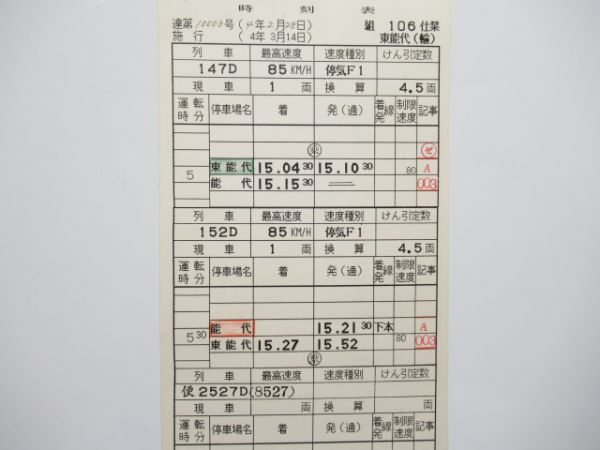 時刻表
達第10003号(4年2月28日) 組 106仕業
施行 (4年3月14日) 東能代(輸)
列車 最高速度 速度種別 けん引定数
147D 85KM/H 停気F1
現車 1両 換算 4.5両
運転時分 停車場名 着 発(通) 着発線 制限速度 記事
乗 セ
東能代 15.04 30 15.10 30 80 A
5 能代 15.15 30 = 003
列車 最高速度 速度種別 けん引定数
152D 85KM/H 停気F1
現車 1両 換算 4.5両
運転時分 停車場名 着 発(通) 着発線 制限速度 記事
能代 15.21 30 下本 A
5 30 東能代 15.27 15.52 80 003
乗
列車 最高速度 速度種別 けん引定数
便2527D(8527)
現車 両 換算 両
運転時分 停車場名 着 発(通) 着発線 制限速度 記事